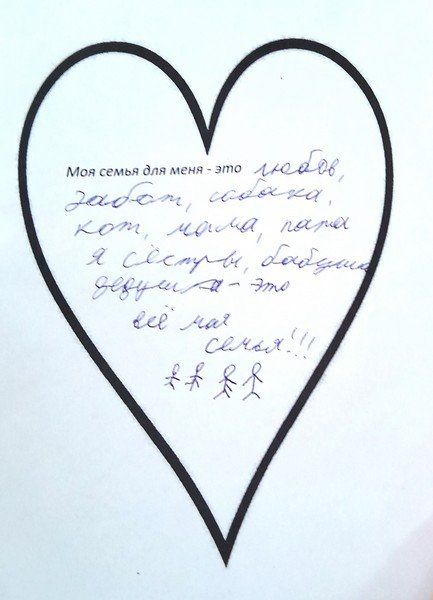 Моя семья для меня - это любов,
забот, собака,
кот, мама, папа
я сёстры, бабушка
дедушка - это
всё моя
семья!!!